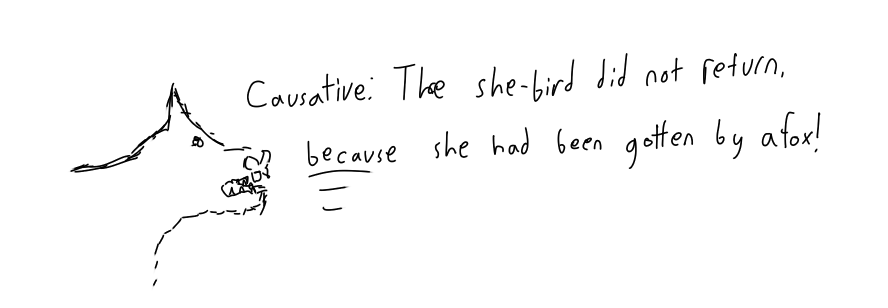 Causative: The she-bird did not return,
because she had been gotten by a fox!